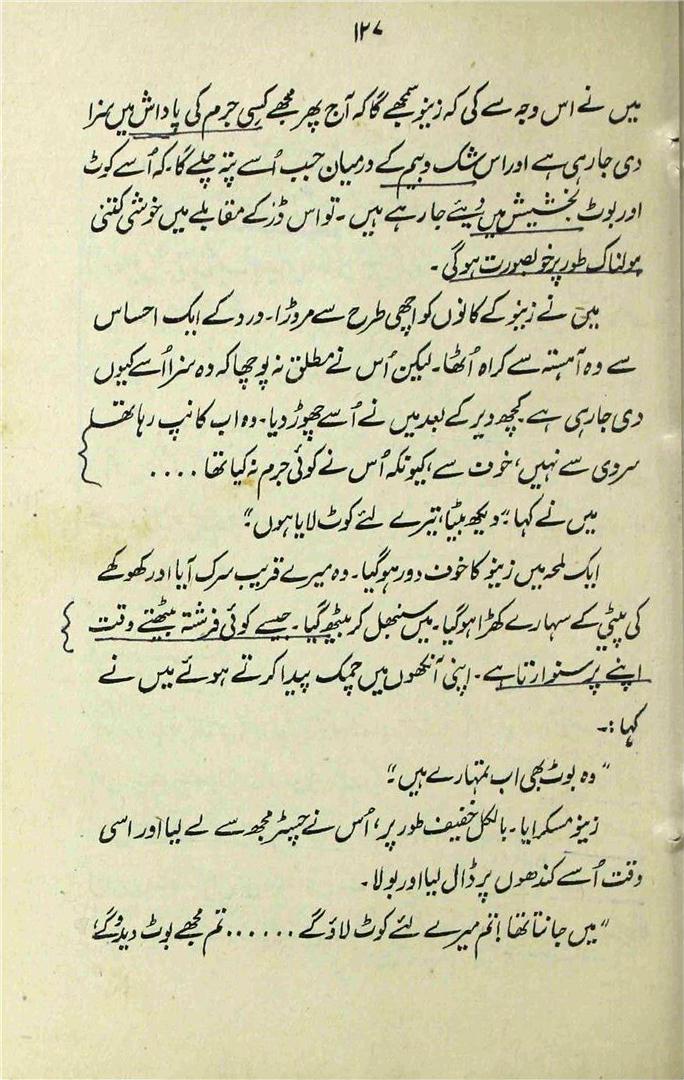 ۱۲۷
میں نے اس وجہ سے کی کہ زینو سمجھے گا کہ آج پھر مجھے کسی جرم کی پاداش میں سزا
دی جا رہی ہے اور اس شک و بیم کے درمیان جب اُسے پتہ چلے گا۔ کہ اُسے کوٹ
اور بوٹ بخشیش میں دیئے جا رہے ہیں۔ تو اس ڈر کے مقابلے میں خوشی کتنی
ہولناک طور پر خوبصورت ہو گی۔
میں نے زینو کے کانوں کو اچھی طرح سے مروڑا۔ درد کے ایک احساس
سے وہ آہستہ سے کراہ اُٹھا۔ لیکن اُس نے مطلق نہ پوچھا کہ وہ سزا اُسے کیوں
دی جا رہی ہے۔ کچھ دیر کے بعد میں نے اُسے چھوڑ دیا۔ وہ اب کانپ رہا تھا
سردی سے نہیں، خوف سے، کیونکہ اُس نے کوئی جرم نہ کیا تھا ....
میں نے کہا۔ "دیکھ بیٹا، تیرے لئے کوٹ لایا ہوں"۔
ایک لمحہ میں زینو کا خوف دور ہو گیا۔ وہ میرے قریب سرک آیا اور کھوکھے
کی پیٹی کے سہارے کھڑا ہو گیا۔ میں سنبھل کر بیٹھ گیا۔ جیسے کوئی فرشتہ بیٹھتے وقت
اپنے پر سنوارتا ہے۔ اپنی آنکھوں میں چمک پیدا کرتے ہوئے میں نے
کہا :۔
"وہ بوٹ بھی اب تمہارے ہیں۔"
زینو مسکرایا۔ بالکل خفیف طور پر، اُس نے چسٹر مجھ سے لے لیا اور اسی
وقت اُسے کندھوں پر ڈال لیا اور بولا۔
"میں جانتا تھا! تم میرے لئے کوٹ لاؤ گے ...... تم مجھے بوٹ دیدو گے"